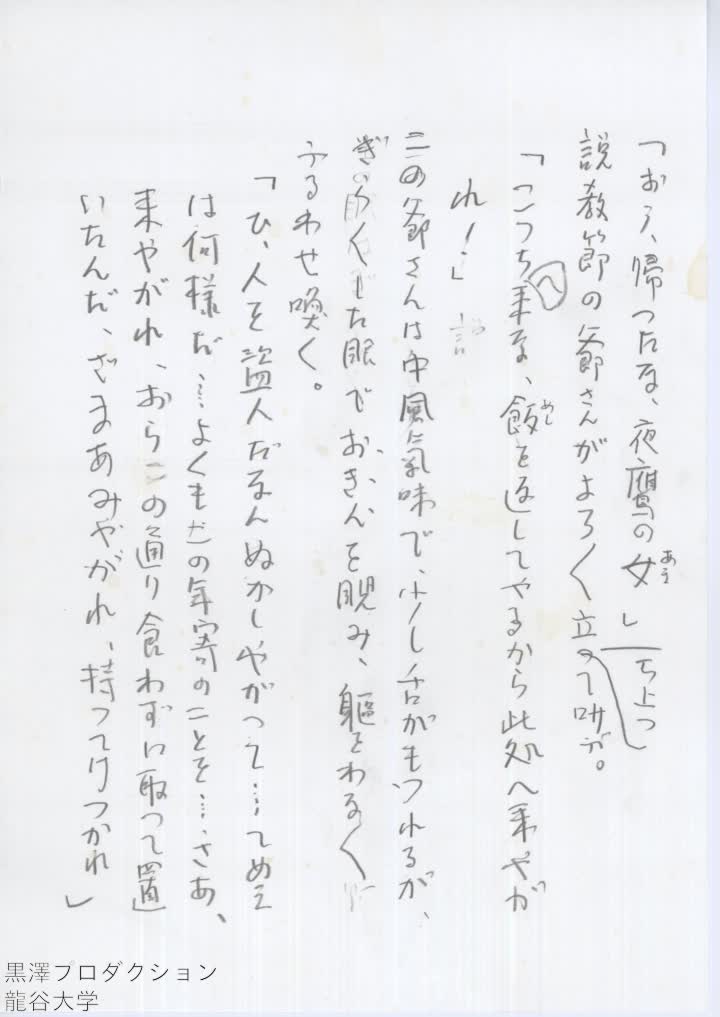 「おう、帰つたな、夜鷹の女」
あま
ち上つ
説教節の爺さんがよろく立つて叫ぶ。
「こつちへ来な、飯を返してやるから此処へ来やが
めし
れ！」
この爺さんは中風気味で、少し舌がもつれるが、
した眼でおきんを睨み、躯をわなく
ふるわせ喚く。
「ひ、人を盗人だなんぬかしやがつて……てめえ
は何様だ……よくもこの年寄のことを……さあ、
来やがれ、おらこの通り食わずに取つて置
いたんだ、ざまあみやがれ、持つてけつかれ」
黒澤プロダクション
龍谷大学